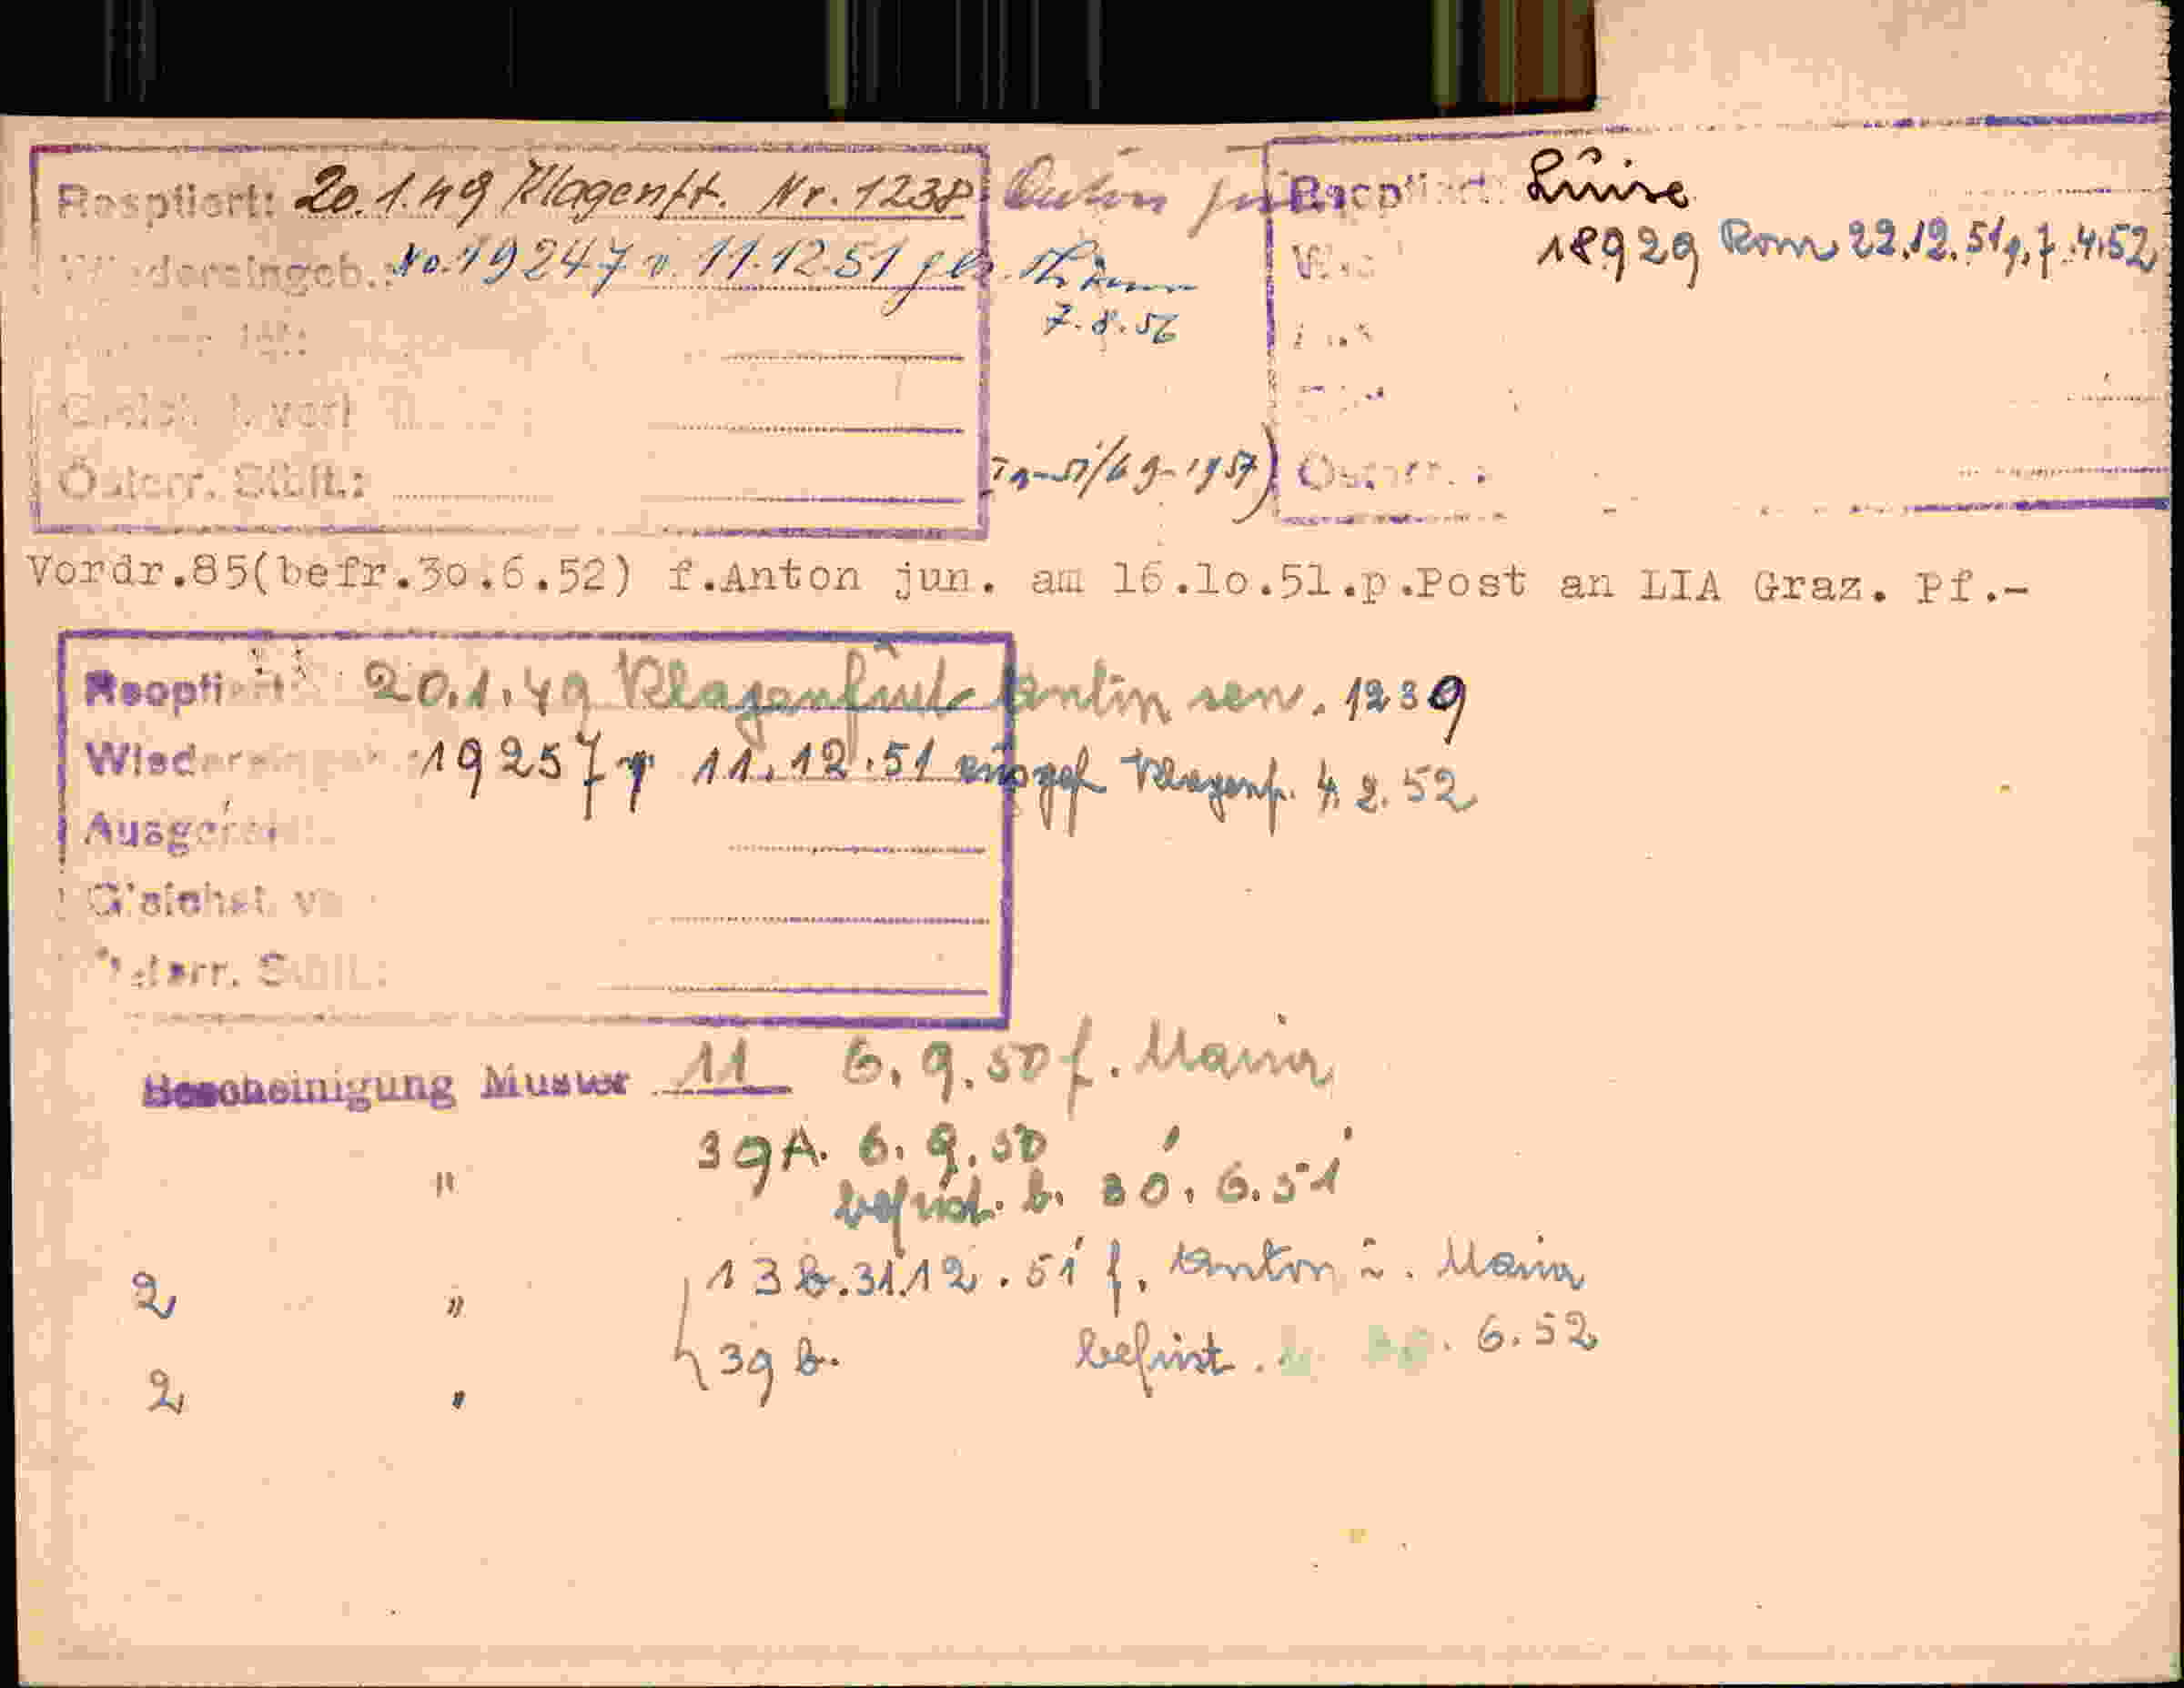 Reoptiert: 20.1.49 Klagenft. Nr. 1238 Anton
Wiedereingeb.: No. 19247 v. 11.12.51
7.8.56
Gleichst. verl
Österr. Stblt.:
Reoptiert: Luise
18929 Rom 22.12.51 7.4.52
Österr.
Vordr.85(befr.30.6.52) f.Anton jun. am 16.10.51.p.Post an LIA Graz. Pf.-
Reoptiert 20.1.49 Klagenfurt Anton sen. 1239
Wieder 19257 v 11.12.51 Klagenf. 4.2.52
Ausge
Gleichst. ve
Österr. Stblt.:
Bescheinigung Muster 11 6.9.50 f. Maria
" 39A. 6.9.50
befrist. b. 30.6.51
2 " 13 b. 31.12.51 f. Anton u. Maria
2 " 39 b. befrist. 6.52